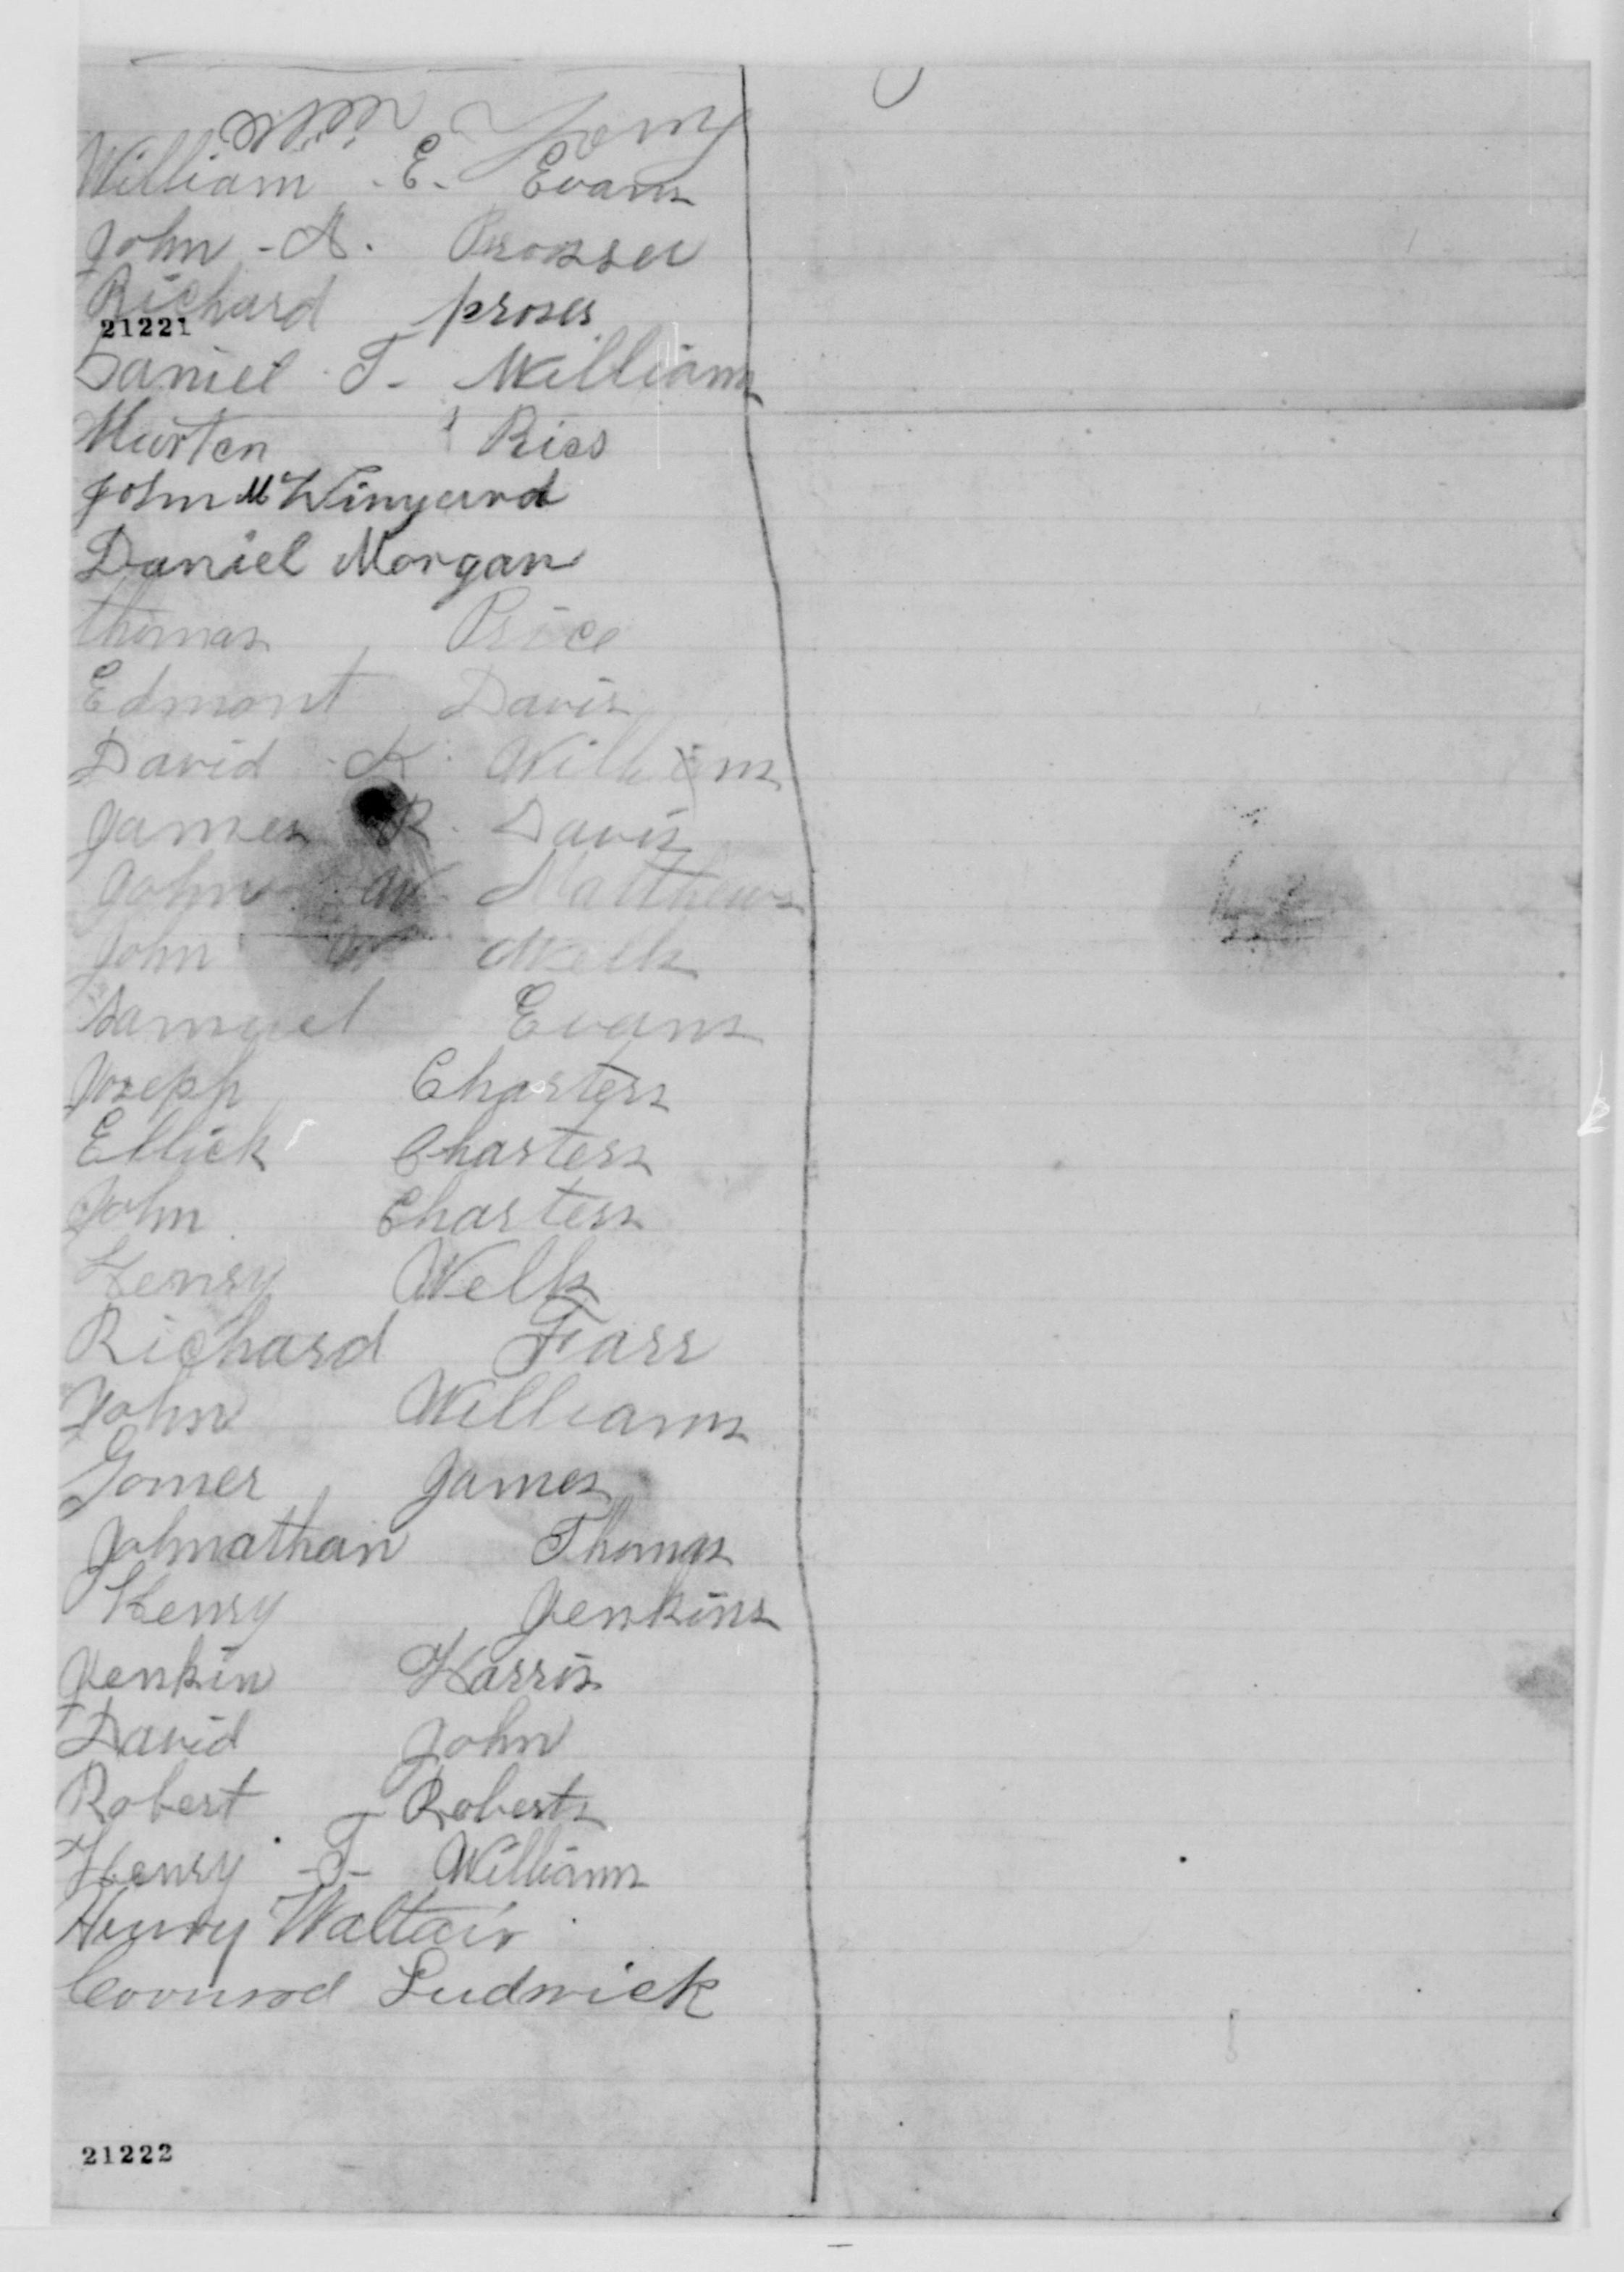 Wm. Tomy
William E. Evans
John A. Prosser
Richard proses
21221
Daniel T. Williams
Murten Riss
John Mc Winyard
Daniel Morgan
thomas Price
Edmont Davis
David K. Williams
James R. Davis
John W Matthews
John W Wells
Samuel Evans
Joseph Charters
Ellick Charters
John Charters
Henry Wells
Richard Farr
John Williams
Gomer James
Johnathan Thomas
Henry Jenkins
Jenkin Harris
David John
Robert Roberts
Henry T Williams
Henry Waltair
Ludwick
21222